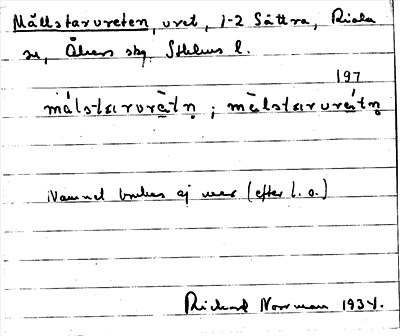 Mållstarvreten, vret, 1-2 Sättra, Riala
sn, Åkers skg. Sthlms l.
197
målstarvrètn̥ ; målstarvrétn̥
Namnet brukas ej mer (efter l. o.)
Rickard Norrman 1934.